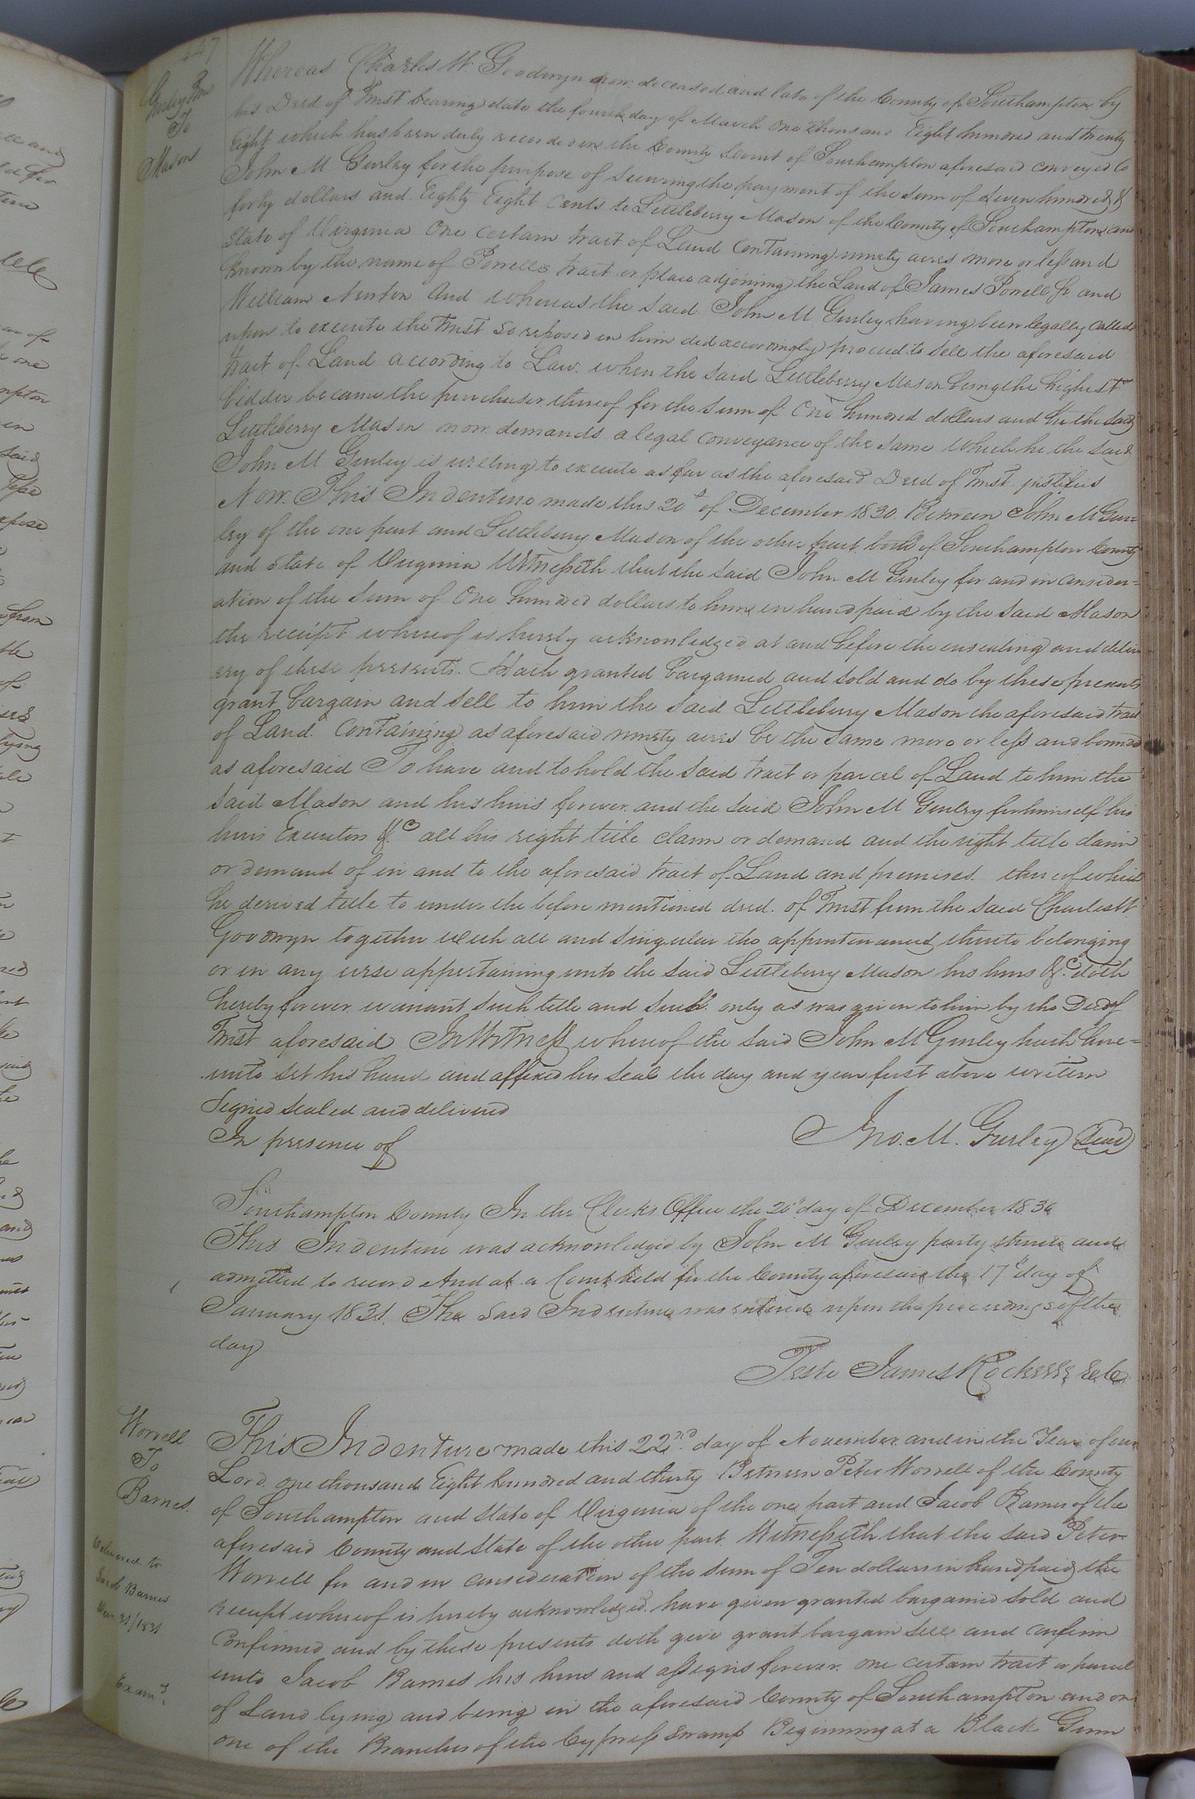 Gurley Tru
To
Mason
Whereas Charles W. Goodwyn now deceased and late of the County of Southampton by
his Deed of Trust bearing date the fourth day of March One thousand Eight hundred and twenty
Eight which has been duly recorded in the County Court of Southampton aforesaid conveyed to
John M Gurley for the purpose of Securing the payment of the sum of Seven hundred &
forty dollars and Eighty Eight Cents to Littleberry Mason of the County of Southampton and
State of Virginia One certain tract of Land Containing ninety acres more or less and
known by the name of tract or place adjoining the Land of James and
William Newton And whereas the said John M Gurley having been legally called
upon to execute the Trust so reposed in him did accordingly proceed to sell the aforesaid
tract of Land according to Law. when the said Littleberry Mason being the highest
bidder became the purchaser thereof for the sum of One hundred dollars and he the said
Littleberry Mason now demands a legal conveyance of the same which he the said
John M Gurley is willing to execute as far as the aforesaid Deed of Trust justifies
Now This Indenture made this 20th of December 1830. Between John M Gur=
ley of the one part and Littleberry Mason of the other part both of Southampton County
and State of Virginia Witnesseth that the said John M Gurley for and in consider=
ation of the Sum of One hundred dollars to him in hand paid by the said Mason
the receipt whereof is hereby acknowledged at and before the ensealing and deliv
ery of these presents. Hath granted bargained and sold and do by these presents
grant bargain and sell to him the said Littleberry Mason the aforesaid tract
of Land Containing as aforesaid ninety acres be the same more or less and bounded
as aforesaid To have and to hold the said tract or parcel of Land to him the
said Mason and his heirs forever. and the said John M Gurley for himself his
heirs Executors &c all his right title claim or demand and the right title claim
or demand of in and to the aforesaid tract of Land and premises. thereof which
he derived title to under the before mentioned deed. of Trust from the said Charles W
Goodwyn together with all and singular the appurtenances thereto belonging
or in any wise appertaining unto the said Littleberry Mason his heirs &c. doth
hereby forever warrant such title and such only as was given to him by the Deed of
Trust aforesaid In Witness whereof the said John M Gurley hath here=
unto set his hand and affixed his Seal the day and year first above written
Signed Sealed and delivered
In presence of
Jno. M. Gurley Seal
Southampton County In the Clerks Office the 20th day of December 1830
This Indenture was acknowledged by John M Gurley party thereto and
admitted to record And at a Court held for the County aforesaid the 17th day of
January 1831. The said Indenture was entered upon the proceedings of the
day
Teste James Rochelle
Worrell
To
Barnes.
Delivered to
Jacob Barnes
31/1831
Examd.
This Indenture made this 22nd. day of November and in the Year of our
Lord one thousand Eight hundred and thirty Between Peter Worrell of the County
of Southampton and State of Virginia of the one part and Jacob Barnes of the
aforesaid County and State of the other part Witnesseth that the said Peter
Worrell for and in consideration of the sum of Ten dollars in hand paid the
receipt whereof is hereby acknowledged. have given granted bargained sold and
Confirmed and by these presents doth give grant bargain sell and confirm
unto Jacob Barnes his heirs and assigns forever. one certain tract or parcel
of Land lying and being in the aforesaid County of Southampton and on
one of the Branches of the Cypress Swamp Beginning at a Black Gum